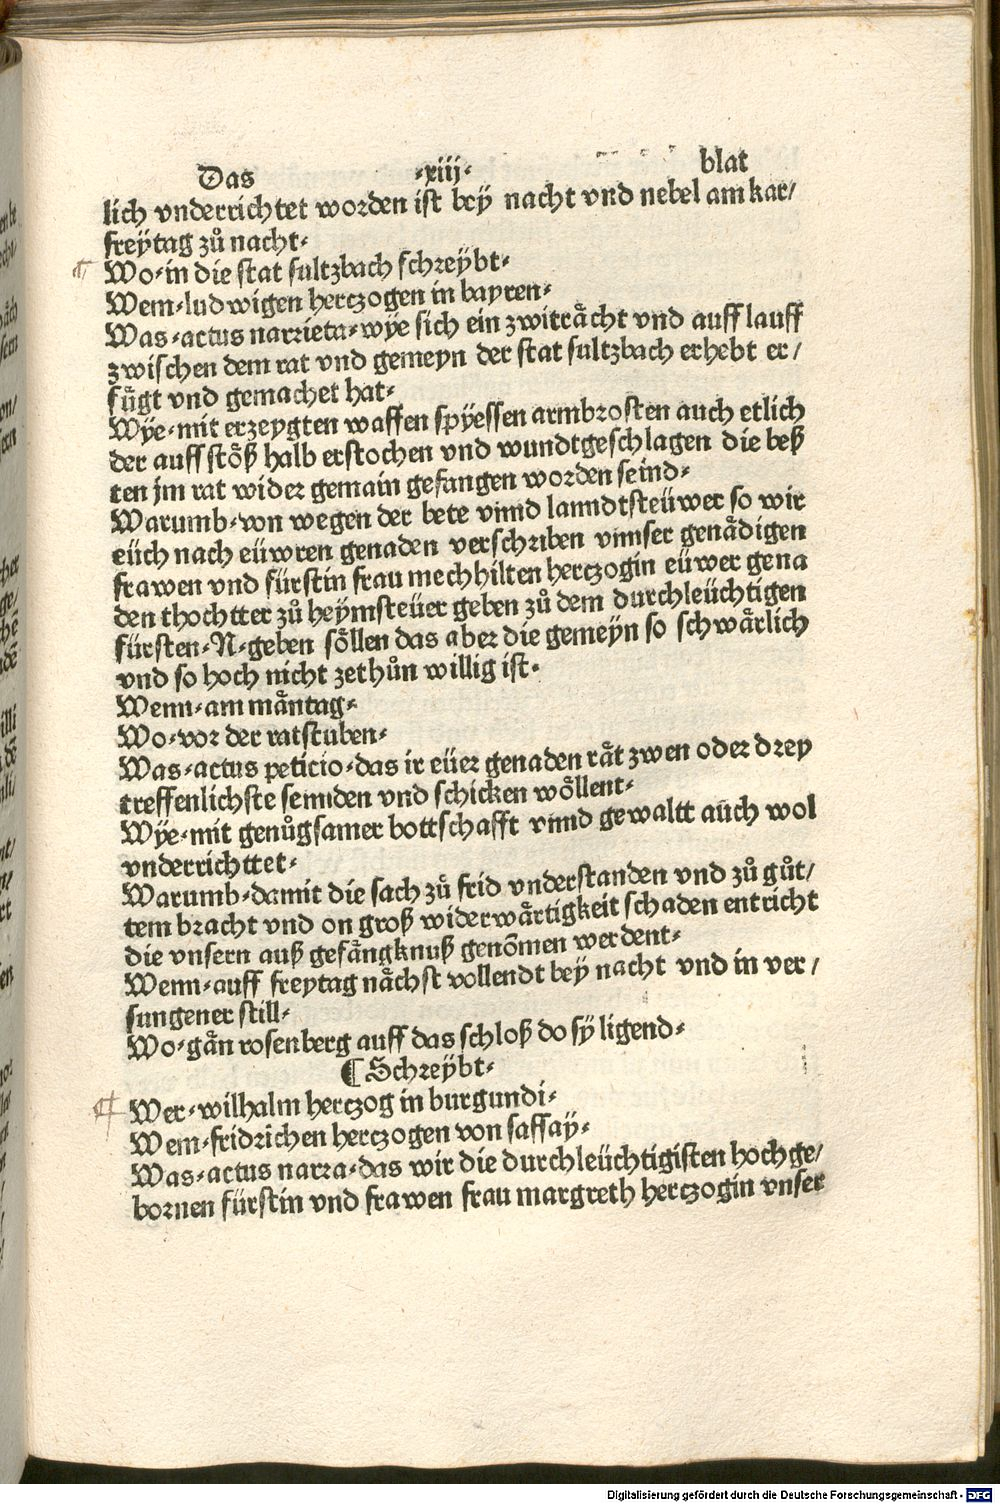 Das ·xiij· blat
lich vnderrichtet worden ist bey nacht vnd nebel am kar/
freÿtag zů nacht·
Wo·in die stat sultzbach schreÿbt·
Wem·ludwigen herczogen in bayren·
Was·actus narrieta·wÿe sich ein zwiträcht vnd aufflauff
zwischen dem rat vnd gemeyn der stat sultzbach erhebt er/
fügt vnd gemachet hat·
Wÿe·mit erzeygten waffen spÿessen armbrosten auch etlich
der auffstöß halb erstochen vnd wundtgeschlagen die beß
ten jm rat wider gemain gefangen worden seind·
Warumb·von wegen der bete vnnd lanndtsteüwer so wir
eüch nach eüwren genaden verschriben vnnser genädigen
frawen vnd fürstin frau mechhilten herczogin eüwer gena
den thochtter zů heÿmsteüer geben zů dem durchleüchtigen
fürsten·N·geben söllen das aber die gemeyn so schwärlich
vnd so hoch nicht zethůn willig ist·
Wenn·am mäntag·
Wo·vor der ratstuben·
Was·actus peticio·das ir eüer genaden rät zwen oder drey
treffenlichste sennden vnd schicken wöllent·
Wÿe·mit genůgsamer bottschafft vnnd gewaltt auch wol
vnderrichttet·
Warumb·damit die sach zů frid vnderstanden vnd zů gůt/
tem bracht vnd on groß widerwärtigkeit schaden entricht
die vnsern auß gefängknuß genōmen werdent·
Wenn·auff freytag nächst vollendt bey nacht vnd in ver/
sungener still·
Wo·gän rosenberg auff das schloß do sÿ ligend·
¶ Schreÿbt·
Wer·wilhalm herczog in burgundi·
Wem·fridrichen herczogen von saffay·
Was·actus narra·das wir die durchleüchtigisten hochge/
bornen fürstin vnd frawen frau margreth herczogin vnser
Digitalisierung gefördert durch die Deutsche Forschungsgemeinschaft - DFG